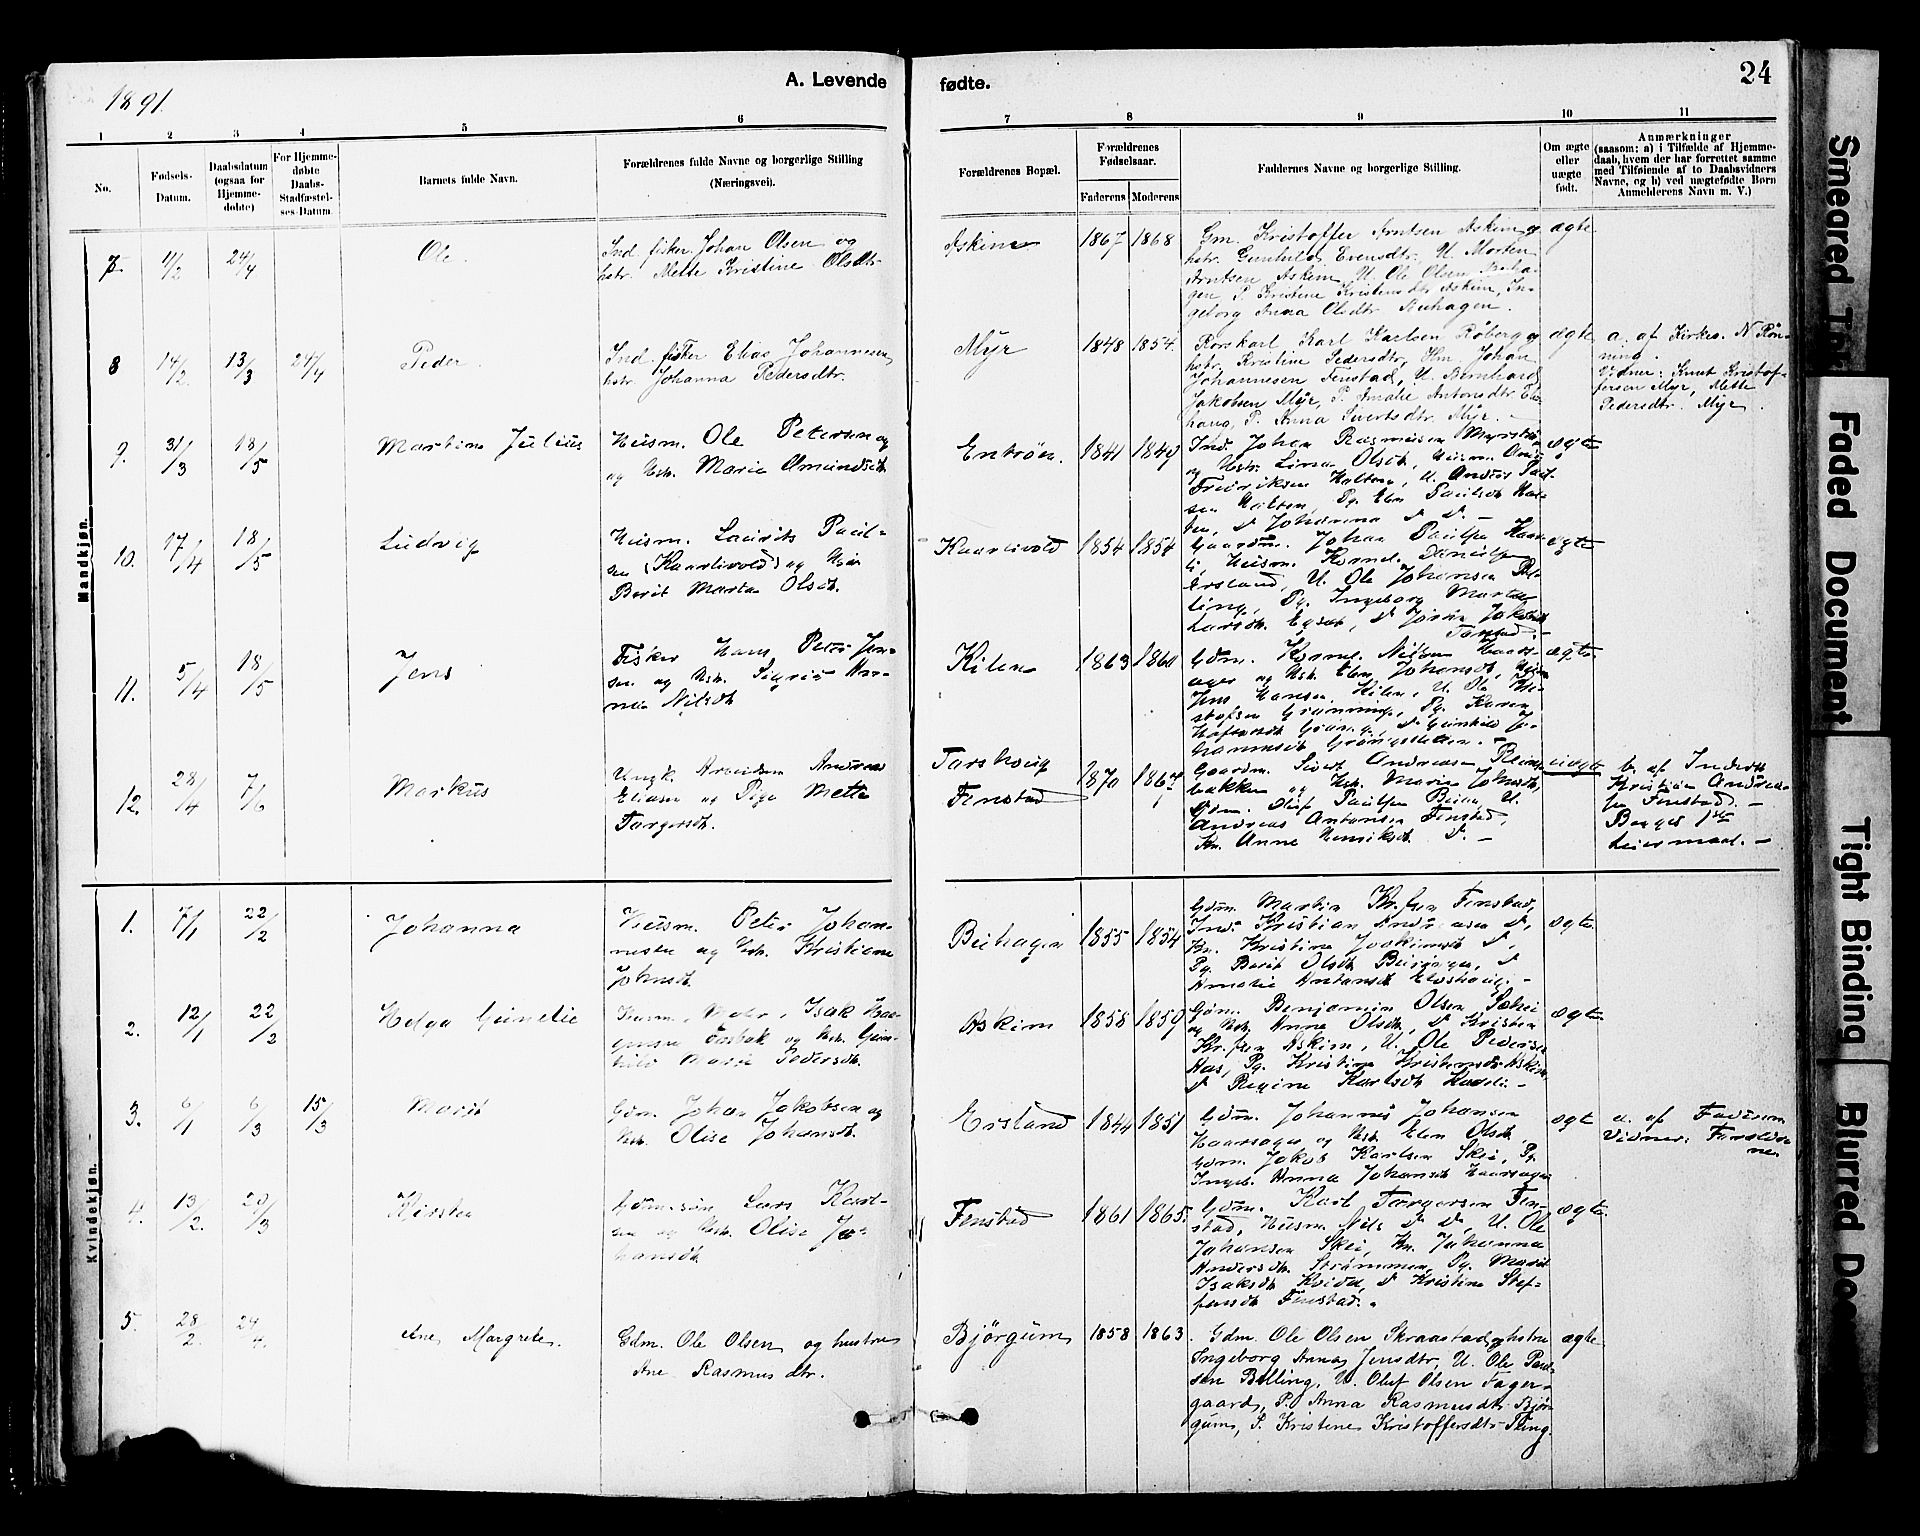 1891.
A. Levende
fødte.
24
1 2 3 4 5 6
7 8 9 10 11
No.
Fødsels-
Datum.
Daabsdatum
(ogsaa for
Hjemme-
døbte)
For Hjemme-
døbte
Daabs-
Stadfæstel-
ses-Datum.
Barnets fulde Navn.
Forældrenes fulde Navne og borgerlige Stilling
(Næringsvei).
Forældrenes Bopæl.
Forældrenes
Fødselsaar.
Faderens Moderens
Faddernes Navne og borgerlige Stilling.
Om ægte
eller
uægte
født.
Anmærkninger
(saasom: a) i Tilfælde af Hjemme-
daab, hvem der har forrettet samme
med Tilføiende af to Daabsvidners
Navne, og b) ved uægtefødte Børn
Anmelderens Navn m. V.)
Mandkjøn.
7. 11/2 24/4
Ole.
Ind. fisker Johan Olsen og
hstr. Mette Kristine Olsdtr.
Askim
1867 1868
Gm. Kristoffer Arntsen Askim og
hstr. Gunhild Evensdtr. U. Morten
Arntsen Askim, U. Ole Olsen
gen, P. Kristine Kristensdtr Askim, In-
geborg Anna Olsdtr
ægte
8 14/2 13/3 24/4
Peder.
Ind. fisker Elias Johannesen
hstr. Johanna Pedersdtr.
Myr
1848 1854.
Karl Karlsen Røberg og
hstr. Kristine Pedersdtr, Hm. Johan
Johannesen Fenstad, U. Bernhard
Jakobsen Myr, P. Amalie Antonsdtr El-
haug, P. Anna Sivertsdtr. Myr. -
ægte
a. af Kirkes. N. Røn-
ning.
Vidner: Knut Kristof-
fersen Myr, Mette
Pedersdtr. Myr.
9. 31/3 18/5
Martin Julius
Husm. Ole Petersen og
og Hst. Marie Amundsdt.
Entrøen.
1841 1849
Ind. Johan Rasmussen
og Hstr. Lina Olsdt, Husm.
Fredriksen Holten, U. Anders Paul-
sen Holten, Pg. Elen Paulsdt Hol-
ten, D Johanna D D. -
ægte
10. 17/4 18/5
Ludvig
Husm. Laurits Paul-
sen (Kaarlivold) og
Berit Marta Olsdt.
Kaarlivold
1854 1854
Gaardm. Johan Paulsen Kaar-
li, Husm. Kornel. Danielsen
Ersland, U. Ole Johansen Bel-
ling, Pg. Ingeborg Marta
Larsdt.
ægte
11. 5/4 18/5
Jens
Fisker Hans Peter Jen-
sen og Hst. Sigrid An-
na Nilsdt
Kilen
1863 1860
Gdm. Kornel. Nilsen Haars-
ager og Hst. Elen Johansdt,
Jens Hansen Kilen, U. Ole Kri-
stofsen Grønning, Pg. Karen
ægte
12. 28/4 7/6
Markus
Ungk. Arbeider Andreas
Eliasen og Pige Mette
Torgersdt.
Torshaug
Fenstad
1870 1867
Gaardm. Sivert Andreasen Rein-
bakken og Hst. Marie Johansdt,
Gdm. Oluf Paulsen Beian, U.
Andreas Antonsen Fenstad,
Kn. Anne Henriksdt D. -
uægte
b. af Inderst
Kristian Andrea-
sen Fenstad. -
Begges 1ste
Leiermaal. -
Kvindekjøn.
1. 7/1 22/2
Johanna
Husm. Peter Johan-
nesen og Hst. Kristiane
Johnsdt.
Beihagen
1855 1854
Gdm. Martin Kr.sen Fenstad,
Ind. Kristian Andreasen D,
Kn. Kristine Joakimsdt D,
Pg. Berit Olsdt D
Amalie Antonsdt Elvshaug. -
ægte.
2. 12/1 22/2
Helga Gunelie
Husm. Isak Haa-
gensen og Hst. Gun-
hild Marie Pedersdt.
Askim
1858 1859
Gdm. Benjamin Olsen
og Hst. Anne Olsdt, D Kristen
Kr.sen Askim, U. Ole Pedersen
Aas, Pg. Kristine Kristensdt Askim
D Regine Karlsdt Kaarli -
ægte.
3. 6/1 6/3 15/3
Marit
Gdm. Johan Jakobsen og
Hst. Olise Johansdt.
Ersland
1844 1851
Gdm. Johannes Johansen
Haarsager og Hst. Elen Olsdt,
Gdm. Jakob Karlsen Skei, Pg.
Ingeb. Anna Johansdt Haarsager
ægt
a. af Faderen
Vidner: Forældre-
ne.
4. 13/2. 29/3
Kirsten
Gdm.søn Lars Karl-
sen og Hst. Olise Jo-
hansdt.
Fenstad
1861 1865.
Gdm. Karl Torgersen Fen-
stad, Husm. Nils D D, U. Ole
Johansen Skei, Kn. Johanna
Andersdt. Strømmen, Pg. Marit
Isaksdt Kvidal, D Kristine Stef-
fensdt Fenstad.
ægte.
5. 28/2. 24/4.
Ane Margrete.
Gdm. Ole Olsen og hustru
Ane Rasmusdtr.
Bjørgum
1858 1863.
Gdm. Ole Olsen Skraastad og hstru
Ingeborg Anna Jensdtr, U. Ole Paul-
sen Belling, U. Oluf Olsen Fager-
gaard, P. Anna Rasmusdtr Bjør-
gum, P. Kristine Kristoffersdtr
ægte
Smeared
Faded Document
Tight Binding
Blurred